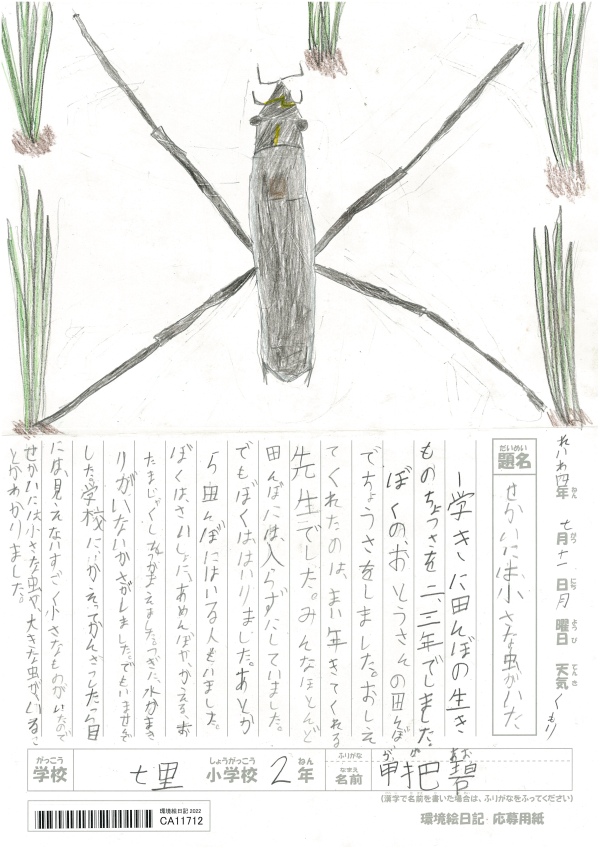 れいわ四年 七月十一日 月曜日 天気 くもり
題名 せかいには小さな虫がいた
一学きに田んぼの生き
ものちょうさを二、三年でしました。
ぼくの、おとうさんの田んぼ
でちょうさをしました。おしえ
てくれたのは、まい年きてくれる
先生でした。みんなほとんど
田んぼには、入らずにしていました。
でもぼくははいりました。あとか
ら田んぼにはいる人もいました。
ぼくはさいしょに、あめんぼや、かえる、お
たまじゃくしをつかまえました。つぎに、水かまき
りがいないかさがしました。でもいませんで
した。学校にかえってかんさつしたら目
には、見えないすごく小さなものがいたので
せかいには小さな虫や、大きな虫がいるこ
とがわかりました。
がっこう
学校
七里
しょうがっこう
小学校
2
ねん
年
ふりがな
なまえ
名前
把碧
(漢字で名前を書いた場合は、ふりがなをふってください)
環境絵日記 2022
CA11712
環境絵日記・応募用紙